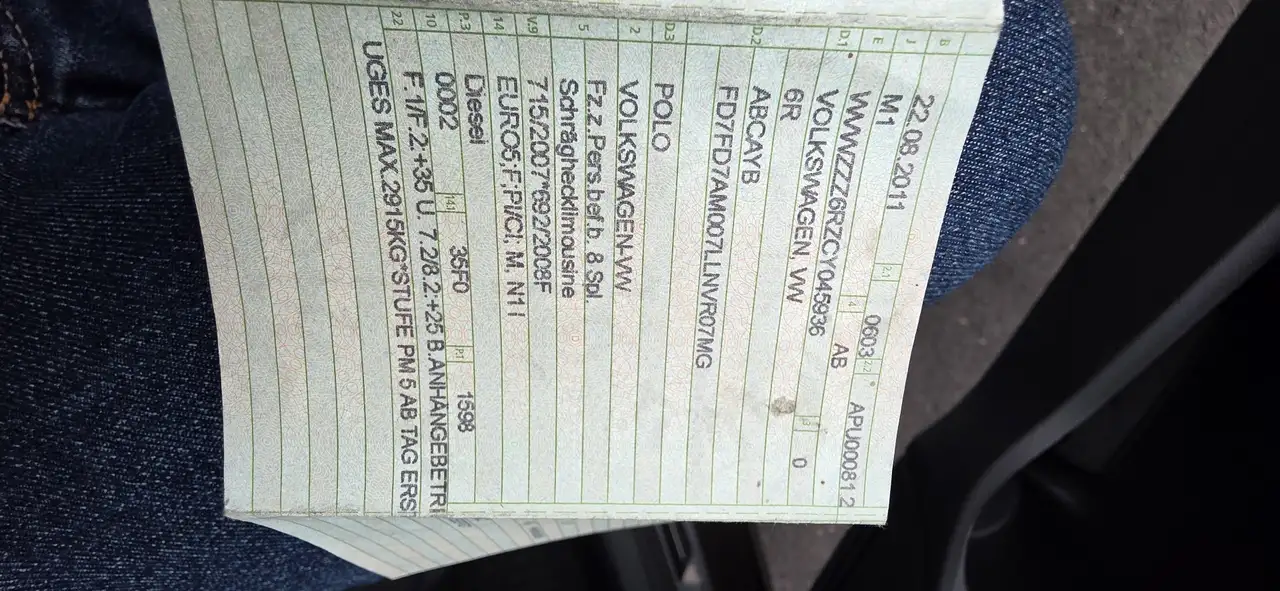 B 22.08.2011 2.1 0603 2.2 APU00081 2
J M1 4 AB
E WVWZZZ6RZCY045936 3 0
D.1 VOLKSWAGEN, VW
6R
D.2 ABCAYB
FD7FD7AM007LLNVR07MG
D.3 POLO
2 VOLKSWAGEN-VW
5 Fz.z.Pers.bef.b. 8 Spl
Schräghecklimousine
V.9 715/2007*692/2008F
14 EURO5;F;PI/CI; M, N1 I
P.3 Diesel
10 0002 14.1 35F0 P.1 1598
22 F.1/F.2:+35 U. 7.2/8.2:+25 B.ANHÄNGEBETRI
UGES MAX.2915KG*STUFE PM 5 AB TAG ERS